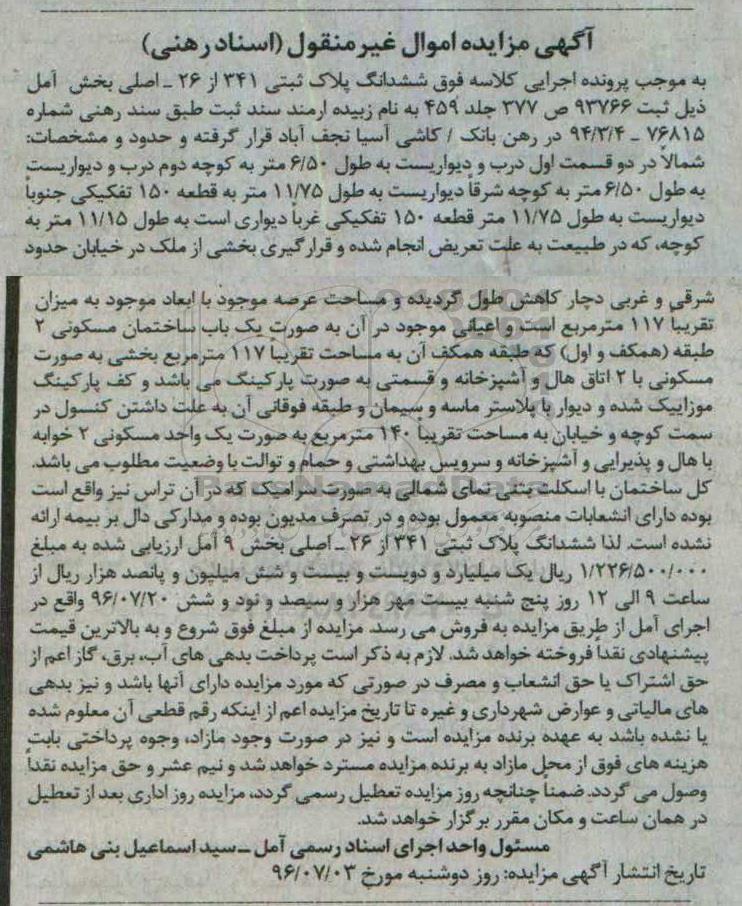 آگهی مزایده اموال غیرمنقول (اسناد رهنی)
به موجب پرونده اجرایی کلاسه فوق ششدانگ پلاک ثبتی ۳۴۱ از ۲۶ ـ اصلی بخش آمل
ذیل ثبت ۹۳۷۶۶ ص ۳۷۷ جلد ۴۵۹ به نام زبیده ارمند سند ثبت طبق سند رهنی شماره
۷۶۸۱۵ ـ ۹۴/۳/۴ در رهن بانک / کاشی آسیا نجف آباد قرار گرفته و حدود و مشخصات:
شمالاً در دو قسمت اول درب و دیواریست به طول ۶/۵۰ متر به کوچه دوم درب و دیواریست
به طول ۶/۵۰ متر به کوچه شرقاً دیواریست به طول ۱۱/۷۵ متر به قطعه ۱۵۰ تفکیکی جنوباً
دیواریست به طول ۱۱/۷۵ متر قطعه ۱۵۰ تفکیکی غرباً دیواری است به طول ۱۱/۱۵ متر به
کوچه، که در طبیعت به علت تعریض انجام شده و قرارگیری بخشی از ملک در خیابان حدود
شرقی و غربی دچار کاهش طول گردیده و مساحت عرصه موجود با ابعاد موجود به میزان
تقریباً ۱۱۷ مترمربع است و اعیانی موجود در آن به صورت یک باب ساختمان مسکونی ۲
طبقه (همکف و اول) که طبقه همکف آن به مساحت تقریبا ۱۱۷ مترمربع بخشی به صورت
مسکونی با ۲ اتاق هال و آشپزخانه و قسمتی به صورت پارکینگ می باشد و کف پارکینگ
موزاییک شده و دیوار با پلاستر ماسه و سیمان و طبقه فوقانی آن به علت داشتن کنسول در
سمت کوچه و خیابان به مساحت تقریبا ۱۴۰ مترمربع به صورت یک واحد مسکونی ۲ خوابه
با هال و پذیرایی و آشپزخانه و سرویس بهداشتی و حمام و توالت با وضعیت مطلوب می باشد.
کل ساختمان با اسکلت بتنی نمای شمالی به صورت سرامیک که در آن تراس نیز واقع است
بوده دارای انشعابات منصوبه معمول بوده و در تصرف مدیون بوده و مدارکی دال بر بیمه ارائه
نشده است. لذا ششدانگ پلاک ثبتی ۳۴۱ از ۲۶ ـ اصلی بخش ۹ آمل ارزیابی شده به مبلغ
۱/۲۲۶/۵۰۰/۰۰۰ ریال یک میلیارد و دویست و بیست و شش میلیون و پانصد هزار ریال از
ساعت ۹ الی ۱۲ روز پنج شنبه بیست مهر هزار و سیصد و نود و شش ۹۶/۰۷/۲۰ واقع در
اجرای آمل از طریق مزایده به فروش می رسد. مزایده از مبلغ فوق شروع و به بالاترین قیمت
پیشنهادی نقداً فروخته خواهد شد. لازم به ذکر است پرداخت بدهی های آب، برق، گاز اعم از
حق اشتراک یا حق انشعاب و مصرف در صورتی که مورد مزایده دارای آنها باشد و نیز بدهی
های مالیاتی و عوارض شهرداری و غیره تا تاریخ مزایده اعم از اینکه رقم قطعی آن معلوم شده
یا نشده باشد به عهده برنده مزایده است و نیز در صورت وجود مازاد، وجوه پرداختی بابت
هزینه های فوق از محل مازاد به برنده مزایده مسترد خواهد شد و نیم عشر و حق مزایده نقداً
وصول می گردد. ضمناً چنانچه روز مزایده تعطیل رسمی گردد، مزایده روز اداری بعد از تعطیل
در همان ساعت و مکان مقرر برگزار خواهد شد.
مسئول واحد اجرای اسناد رسمی آمل ـ سید اسماعیل بنی هاشمی
تاریخ انتشار آگهی مزایده: روز دوشنبه مورخ ۹۶/۰۷/۰۳
ParsNamadData